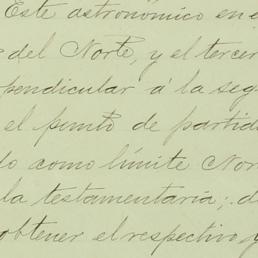 Este astronómico en e
del Norte, y el tercer
pendicular á la seg
el punto de partid
do como límite Nor
la testamentaria; d
obtener el respectivo y